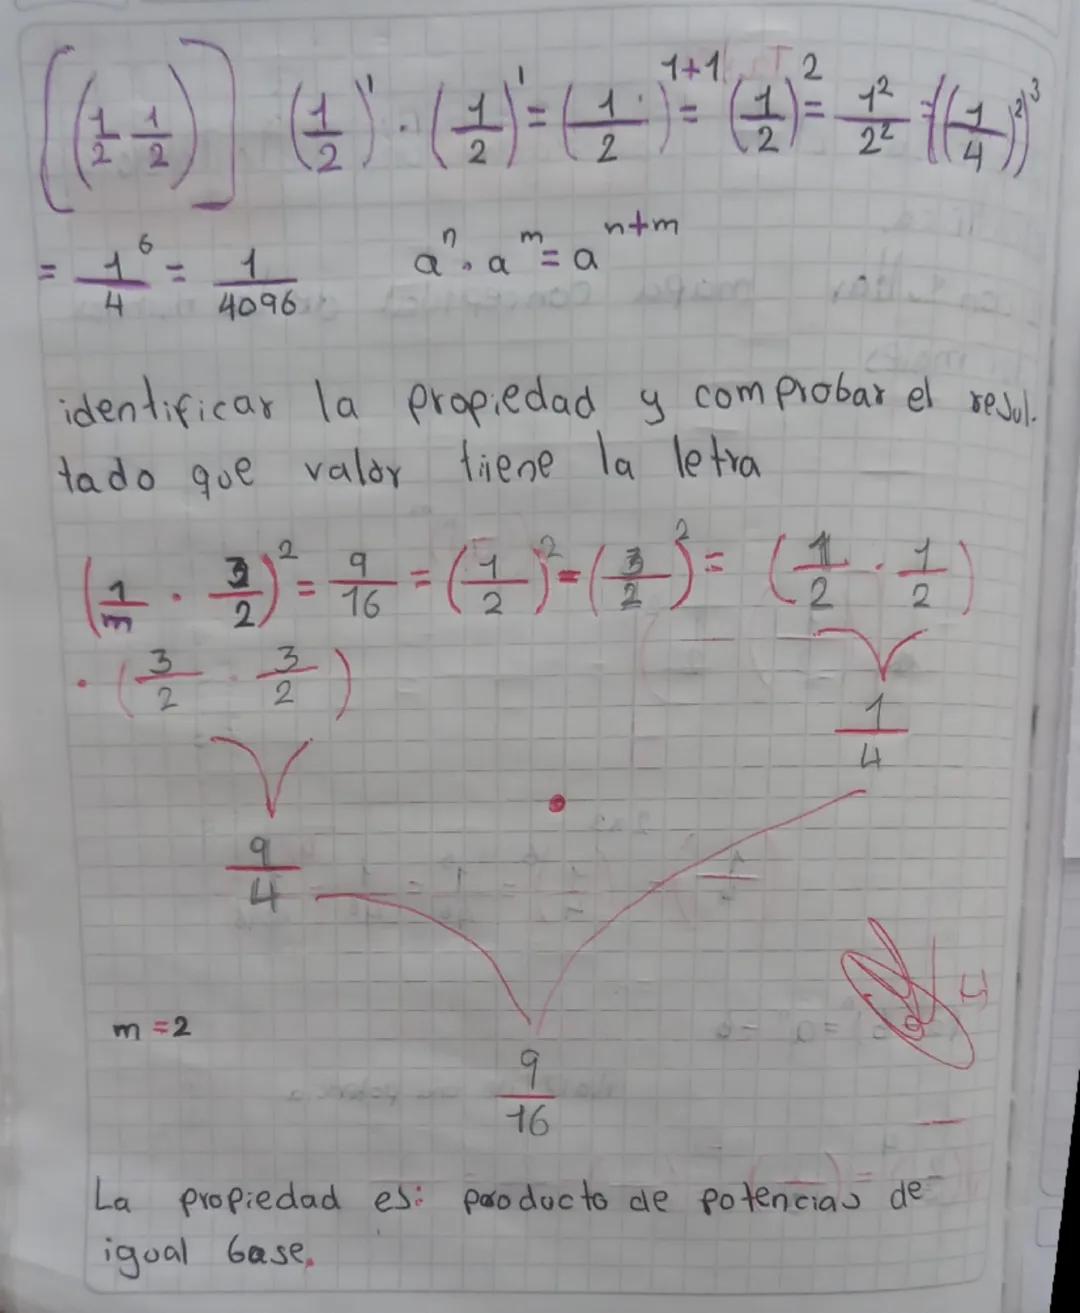 [(1/2 1/2)] (1/2)¹ · (1/2)¹ = (1/2)¹⁺¹ = (1/2)² = 1²/2² = ((1/4)²)³
= 1/4⁶ = 1/4096 aⁿ · aᵐ = aⁿ⁺ᵐ
identificar la propiedad y comprobar el resul-
tado que valor tiiene la letra
(1/m · 3/2)² = 9/16 = (1/2)² = (3/2)² = (1/2 · 1/2)
· (3/2 · 3/2)
1/4
9/4
m = 2
9/16
La propiedad es: producto de potencias de
igual base.